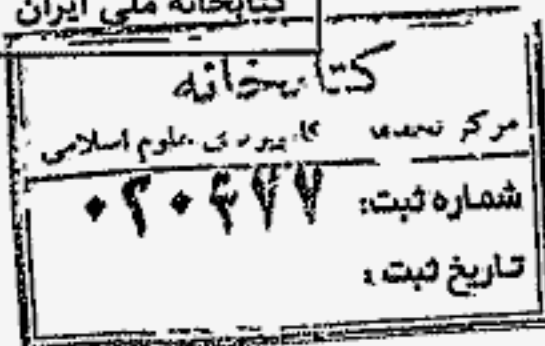 کتابخانه ملی ایران
کتابخانه
مرکز تحقیقات کامپیوتری علوم اسلامی
شماره ثبت:
تاریخ ثبت: